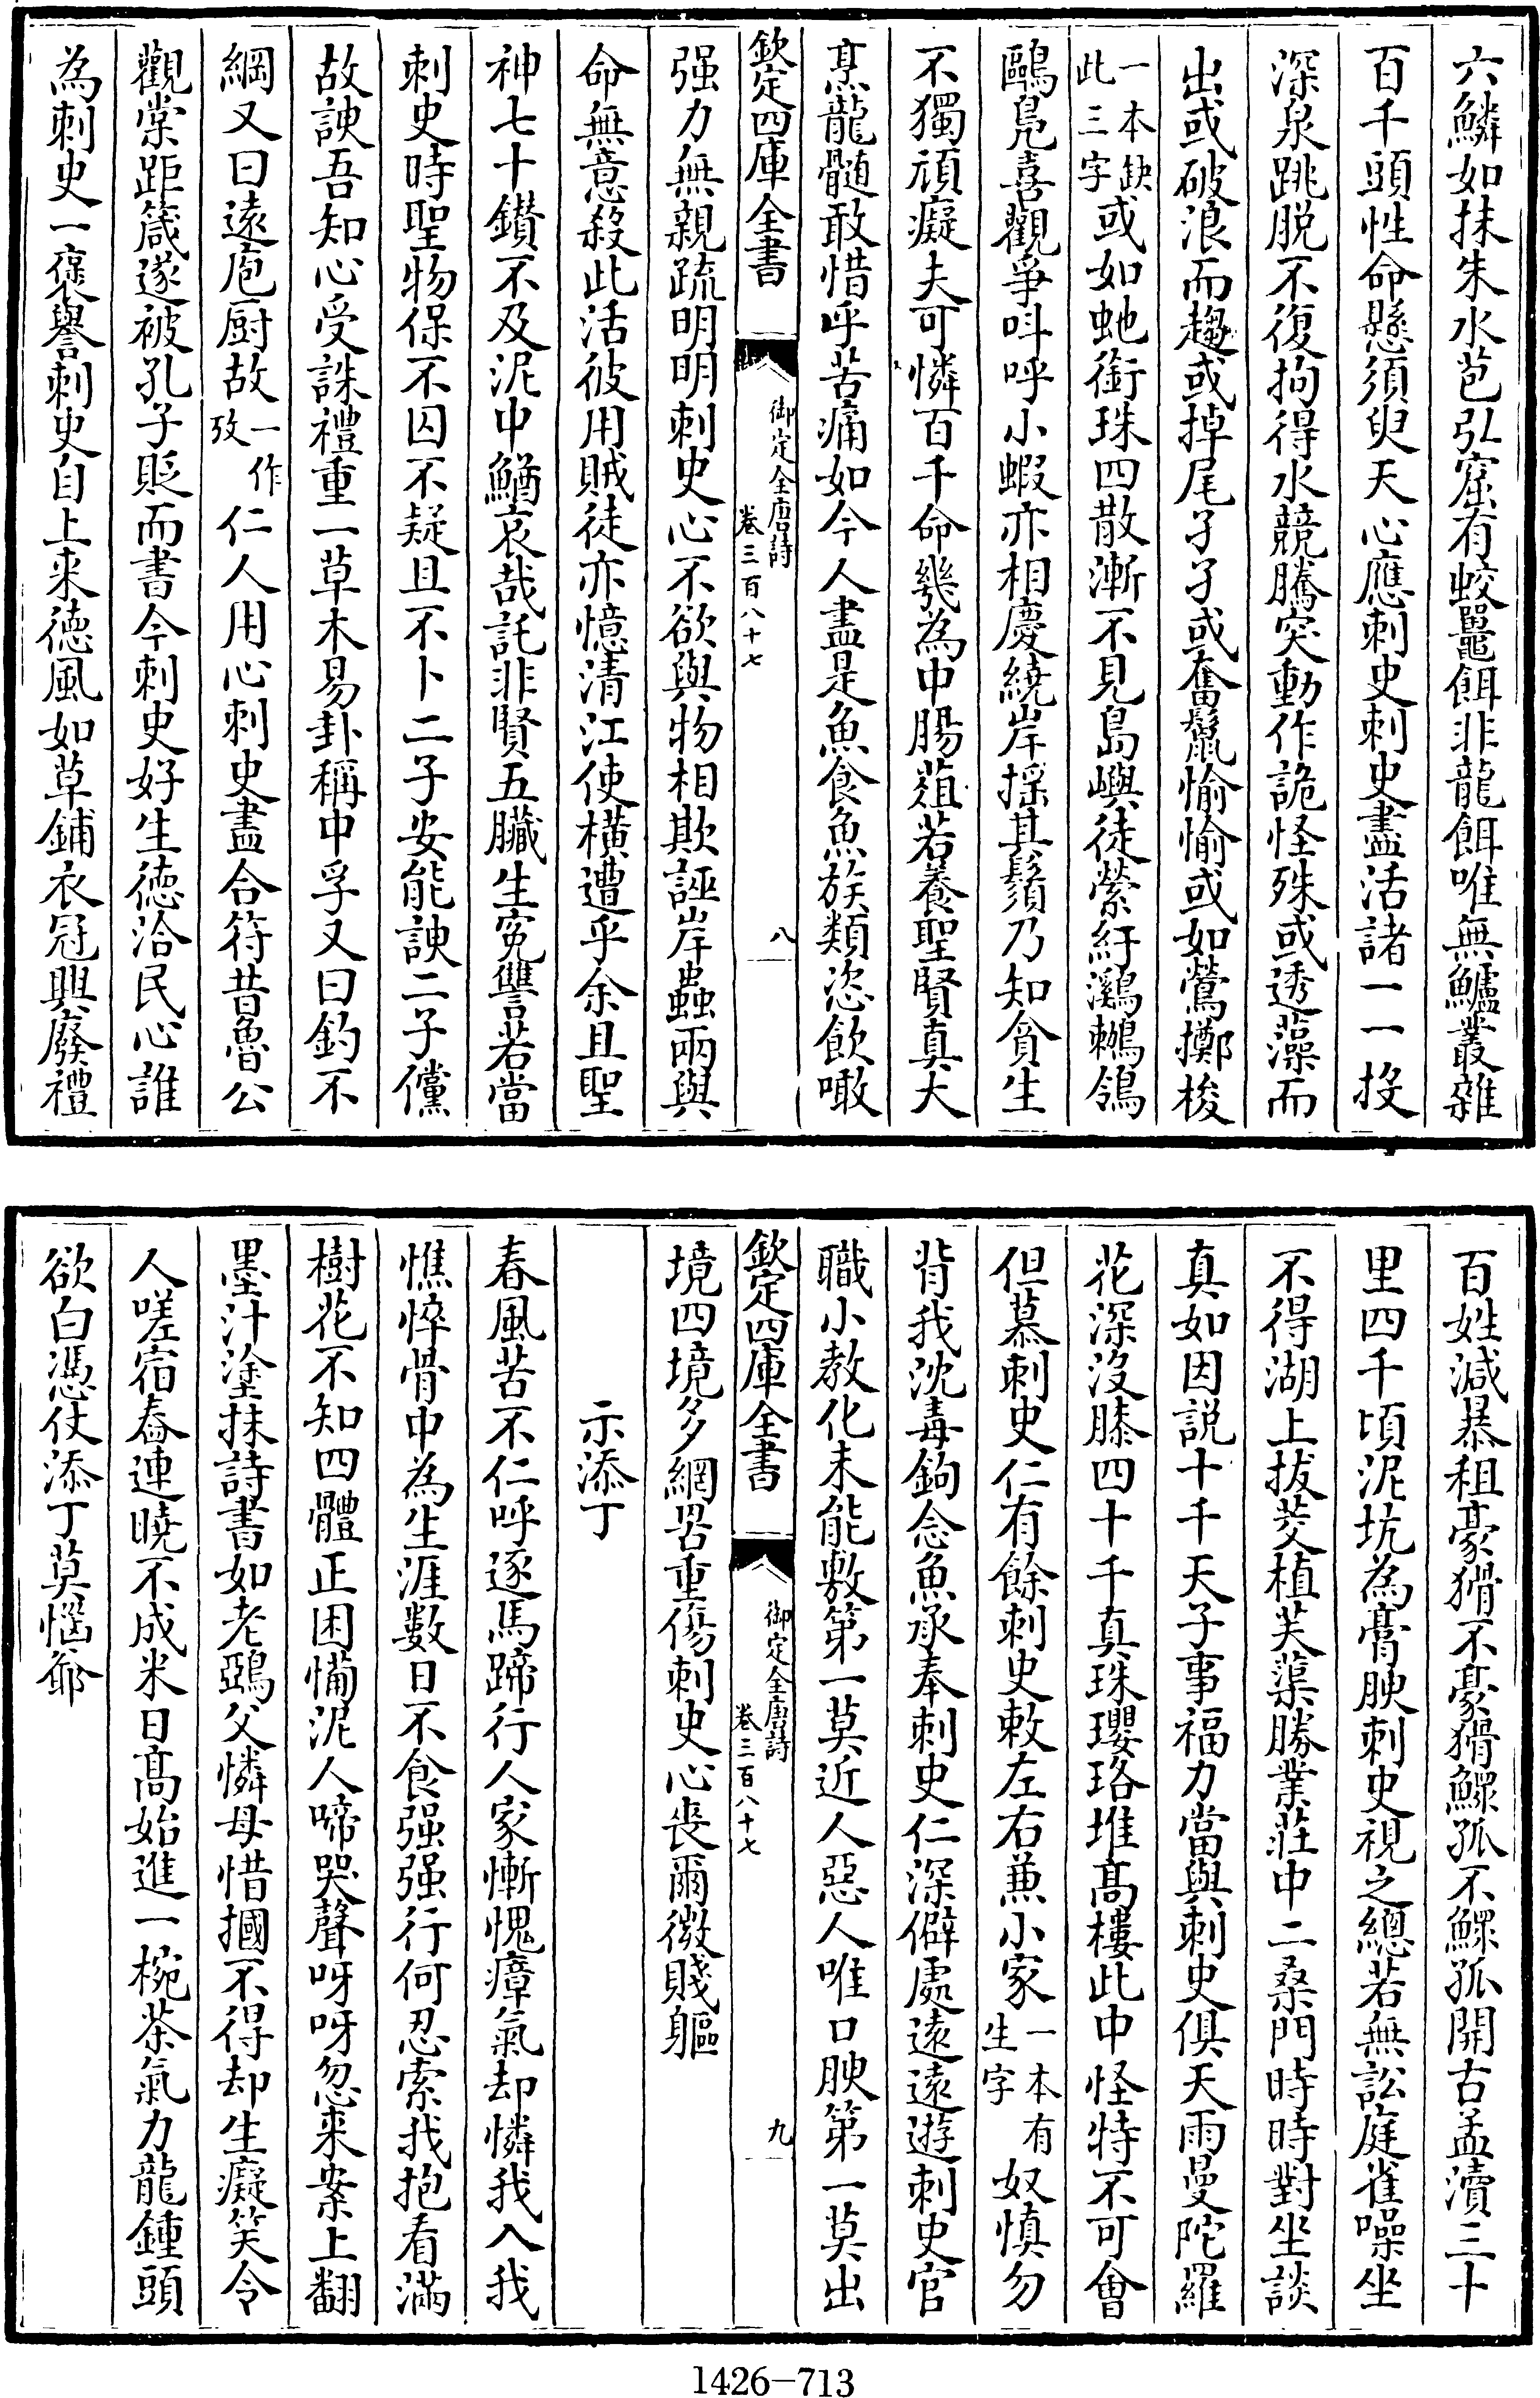 六鱗如抹朱水苞弘窟有蛟鼉餌非龍餌唯無鱸叢雜
百千頭性命懸須臾天心應刺史刺史盡活諸一一投
深泉跳脱不復拘得水競騰突動作詭怪殊或透藻而
出或破浪而趨或掉尾孑孑或奮鬛愉愉或如鶯擲梭
一本缺此三字或如虵銜珠四散漸不見島嶼徒縈紆鸂鶒鴒
鷗鳧喜觀爭叫呼小蝦亦相慶繞岸摇其鬚乃知貪生
不獨頑癡夫可憐百千命幾為中腸葅若養聖賢真大
烹龍髓敢惜乎苦痛如今人盡是魚食魚族類恣飲噉
欽定四庫全書 御定全唐詩 卷三百八十七 八
强力無親疏明明刺史心不欲與物相欺誣岸蟲兩與
命無意殺此活彼用賊徒亦憶清江使橫遭乎余且聖
神七十鑽不及泥中鰌哀哉託非賢五臟生寃讐若當
刺史時聖物保不囚不疑且不卜二子安能諛二子儻
故諛吾知心受誅禮重一草木易卦稱中孚又曰釣不
綱又曰遠庖厨故一作攷仁人用心刺史盡合符昔魯公
觀棠距箴遂被孔子貶而書今刺史好生德洽民心誰
為刺史一襃譽刺史自上来德風如草鋪衣冠興廢禮
百姓減暴租豪猾不豪猾鰥孤不鰥孤開古孟瀆三十
里四千頃泥坑為膏腴刺史視之總若無訟庭雀噪坐
不得湖上拔茭植芙蕖勝業莊中二桑門時時對坐談
真如因説十千天子事福力當與刺史俱天雨曼陀羅
花深没膝四十千真珠瓔珞堆髙樓此中怪特不可會
但慕刺史仁有餘刺史敕左右兼小家一本有生字奴慎勿
背我沈毒鉤念魚承奉刺史仁深僻處遠遠遊刺史官
職小教化未能敷第一莫近人惡人唯口腴第一莫出
欽定四庫全書 御定全唐詩 卷三百八十七 九
境四境多網罟重傷刺史心喪爾微賤軀
示添丁
春風苦不仁呼逐馬蹄行人家慚愧瘴氣却憐我入我
憔悴骨中為生涯數日不食强强行何忍索我抱看滿
樹花不知四體正困憊泥人啼哭聲呀呀忽来案上翻
墨汁塗抹詩書如老鴉父憐母惜摑不得却生癡笑令
人嗟宿舂連曉不成米日髙始進一椀茶氣力龍鍾頭
欲白憑仗添丁莫惱爺
1426-713